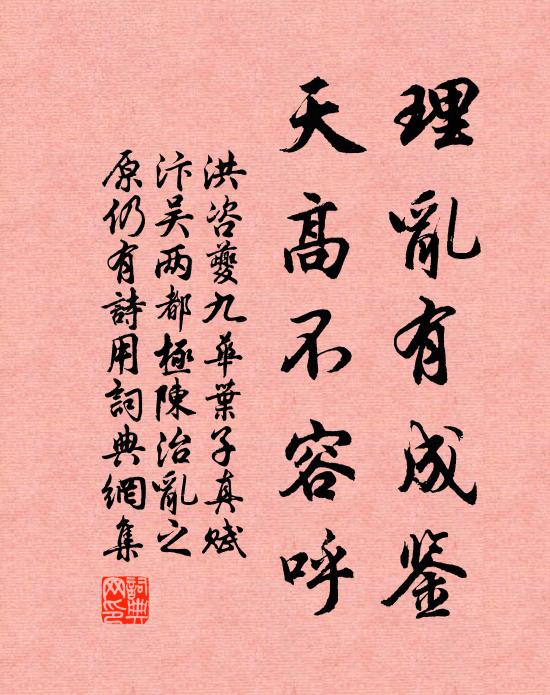 理亂有成鉴
天高不容呼
洪咨夔九華葉子真赋
汴吴两都極陳治亂之
原仍有詩用詞典網集